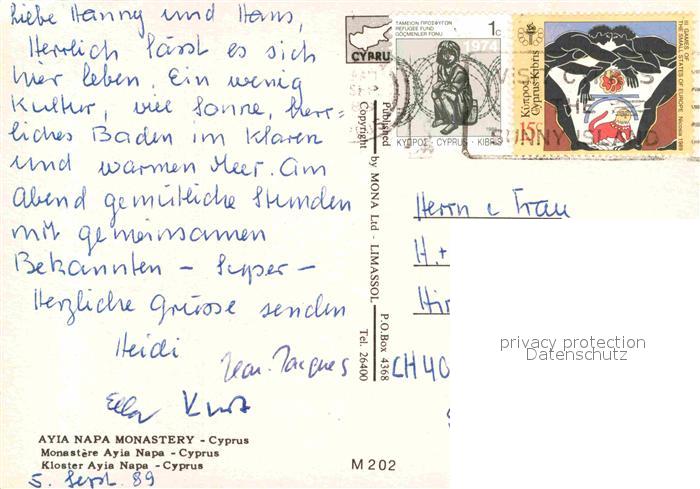 Liebe Hanny und Hans,
Herrlich lässt es sich
hier leben. Ein wenig
Kultur, viel Sonne, herr-
liches Baden im klaren
und warmen Meer. Am
Abend gemütliche Stunden
mit gemeinsamen
Bekannten – Super –
Herzliche Grüsse senden
Heidi
Jean-Jacques
Kurt
AYIA NAPA MONASTERY - Cyprus
Monastère Ayia Napa - Cyprus
Kloster Ayia Napa - Cyprus
5. Sept. 89
M 202
Published by MONA Ltd - LIMASSOL P.O.Box 4368
Copyright Tel. 26400
CYPRUS
ΤΑΜΕΙΟΝ ΠΡΟΣΦΥΓΩΝ
REFUGEE FUND
GÖÇMENLER FONU
1c
1974
ΚΥΠΡΟΣ · CYPRUS · KIBRIS
Κύπρος
Cyprus-Kıbrıs
15c
III GAMES OF
THE SMALL STATES OF EUROPE, Nicosia 1989
VISIT CYPRUS
THE
SUNNY ISLAND
Herrn u Frau
H. +
Hir
CH 40
privacy protection
Datenschutz